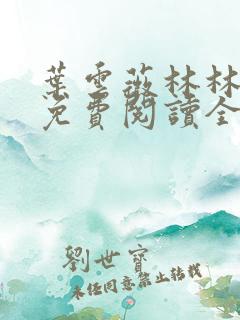 葉雲薇林林
免費閱讀全
劉世寶
未经同意禁止转载